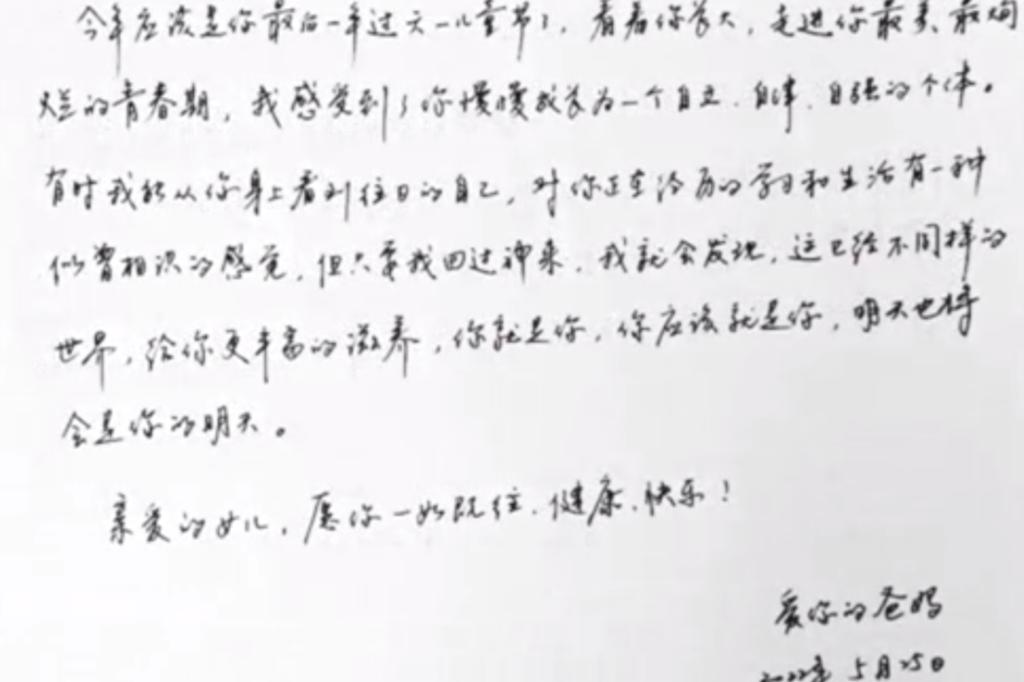 今年应该是你最后一年过六一儿童节了，看着你长大，走进你最美、最绚
烂的青春期，我感受到了你慢慢成长为一个自立、自律、自强的个体。
有时我能从你身上看到往日的自己，对你正在经历的学习和生活有一种
似曾相识的感觉，但只要我回过神来，我就会发现，这已经不同样的
世界，给你更丰富的滋养，你就是你，你应该就是你，明天也将
会是你的明天。
亲爱的女儿，愿你一如既往、健康、快乐！
爱你的爸妈
2022年5月25日